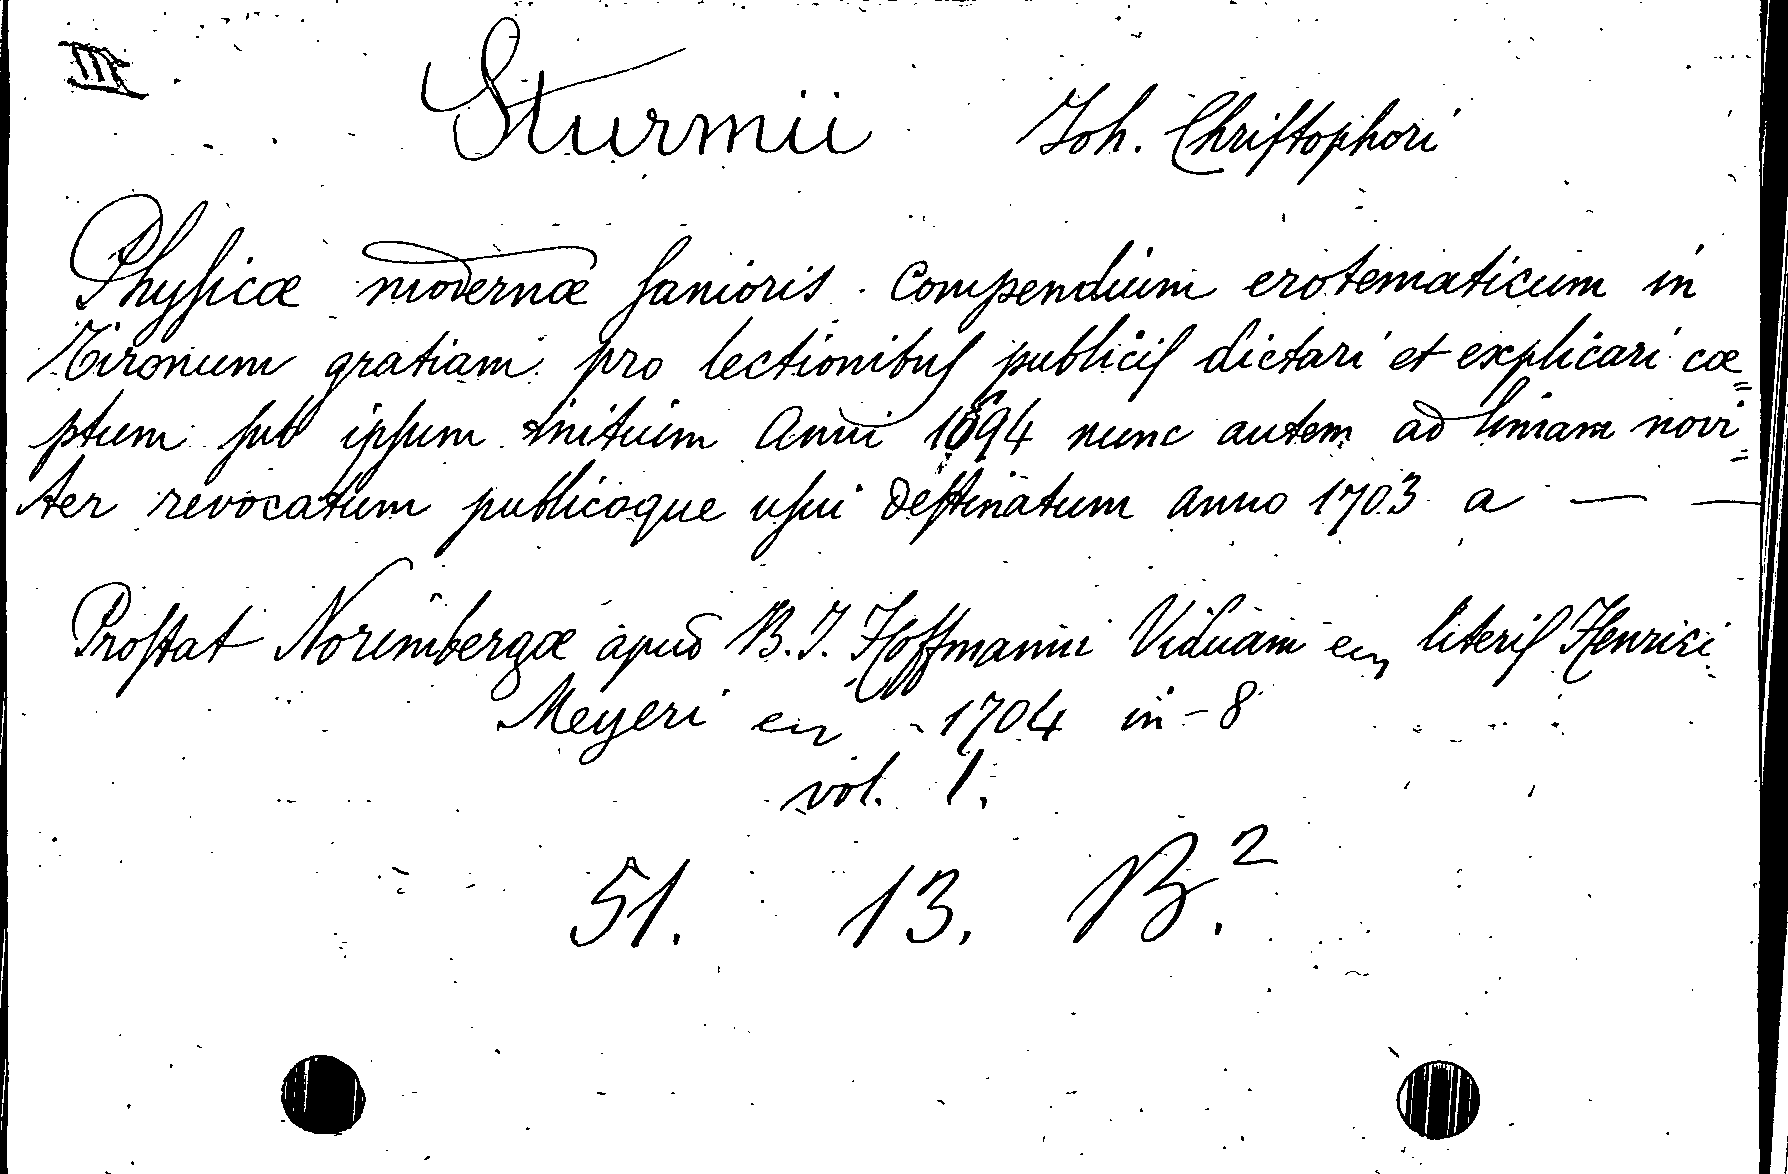 III
Sturmii Joh. Chriſtophori
Phyſicæ modernæ ſanioris. Compendium erotematicum in
Tironum gratiam pro lectionibuſ publiciſ dictari et explicari cæ=
ptum ſub ipſum initium Anni 1694 nunc autem ad limam novi=
ter revocatum publicoque uſui deſtinatum anno 1703 a — —
Proſtat Norimbergæ apud B. J. Hoffmanni Viduam en literiſ Henrici
Meyeri en - 1704 in - 8
vol. 1.
51. 13. B.²